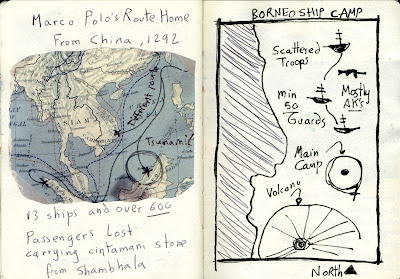 Marco Polo's Route Home
From China, 1292
SIAM
Different route
Tsunami?
13 ships and over 600
Passengers Lost
carrying cintamani stone
from Shambhala
BORNEO SHIP CAMP
Scattered
Troops
min
50
Guards
Mostly
AK's
Main
Camp
Volcano
North